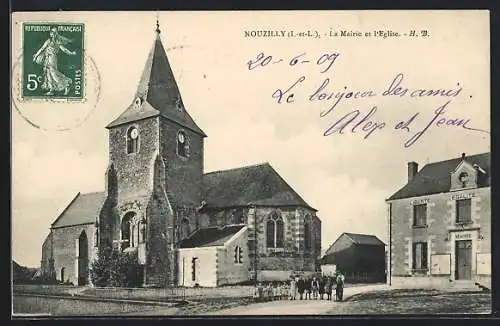 REPUBLIQUE FRANÇAISE
5c
POSTES
NOUZILLY (I.-et-L.). - La Mairie et l'Eglise. - H. B.
20-6-09
Le bonjour des amis
Alex et Jean
LIBERTE EGALITE
MAIRIE